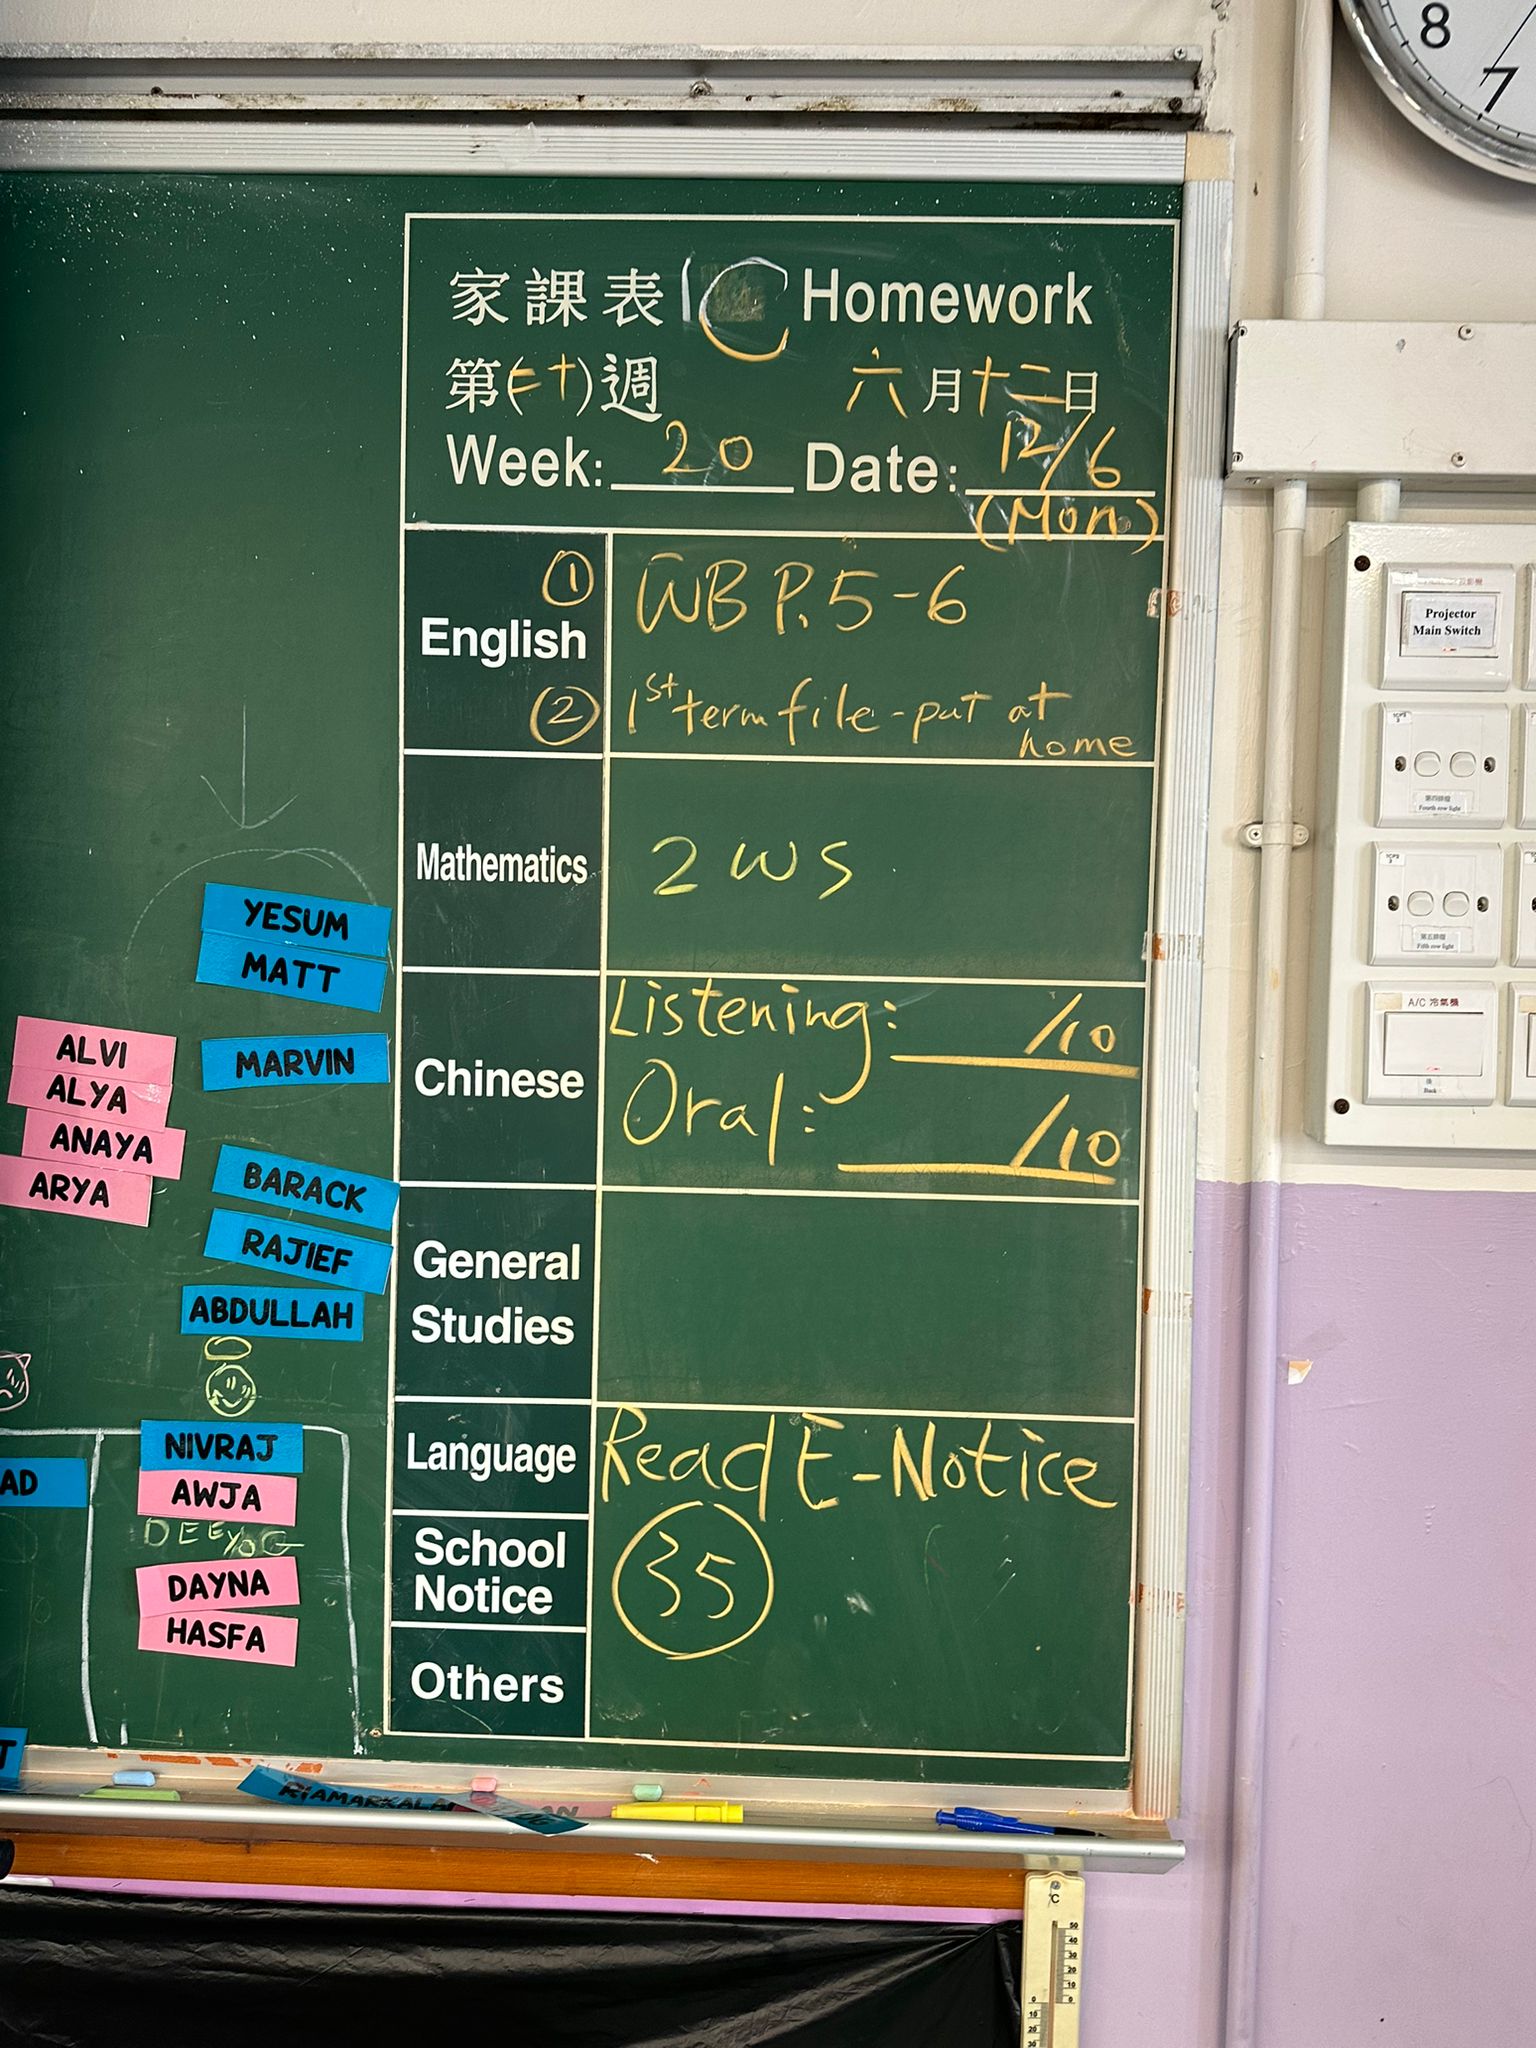 8
7
家課表 1C Homework
第(二十)週 六月十二日
Week: 20 Date: 12/6
(Mon)
English
① WB P.5-6
② 1st term file-put at
home
Mathematics 2 WS
Chinese
Listening: /10
Oral: /10
General
Studies
Language
Read E-Notice
School
Notice
35
Others
YESUM
MATT
MARVIN
ALVI
ALYA
ANAYA
ARYA
BARACK
RAJIEF
ABDULLAH
NIVRAJ
AWJA
DEEYOG
DAYNA
HASFA
AD
Projector
Main Switch
第四排燈
Fourth row light
第五排燈
Fifth row light
A/C 冷氣機
後
Back
°C
50
40
30
20
10
0
0
10
20
30